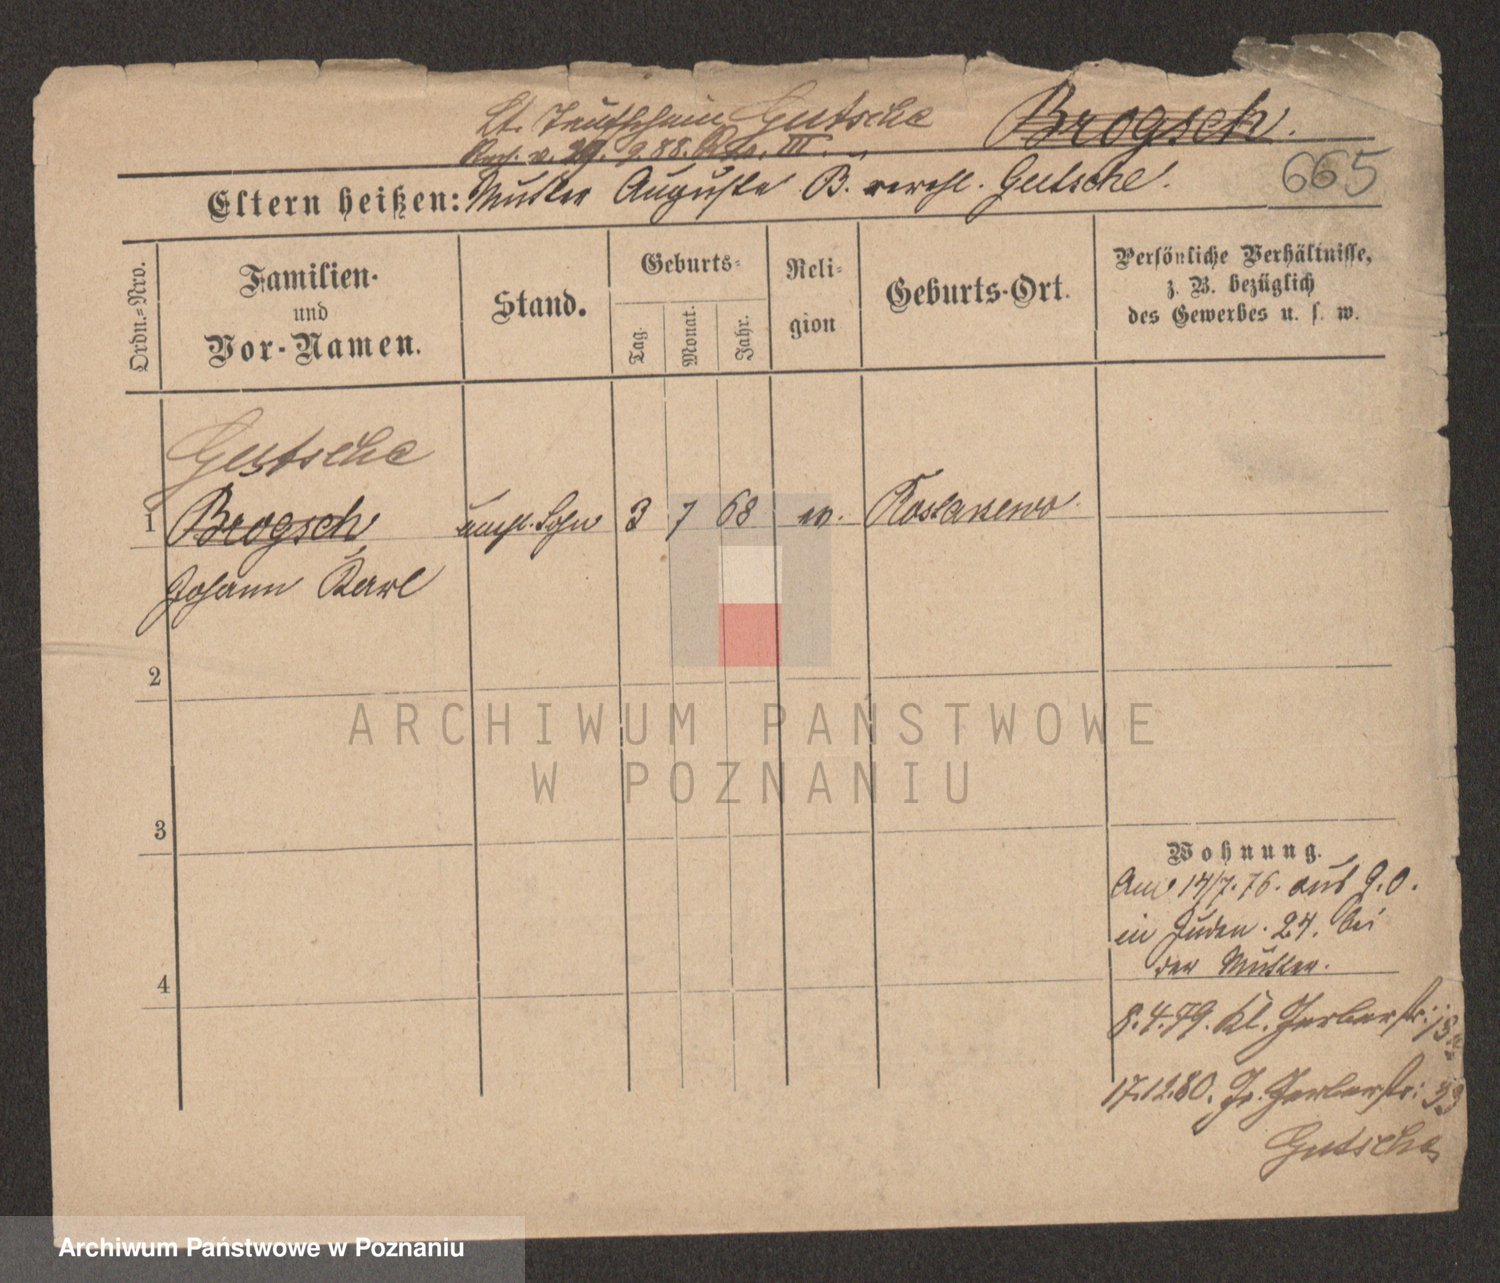 Lt. Taufschein Gutsche Brogsch.
v. 9. 88. III.
665
Eltern heißen: Mutter Auguste B. verehl. Gutsche.
Ordn.-Nro. Familien- und Vor-Namen. Stand. Geburts- Tag. Monat. Jahr. Religion Geburts-Ort. Persönliche Verhältnisse, z. B. bezüglich des Gewerbes u. s. w.
Gutsche
1 Brogsch unehl. Sohn 3 7 68 ev. Koslanewo
Johann Karl
2
ARCHIWUM PAŃSTWOWE
W POZNANIU
3
Wohnung.
Am 14/7. 76. aus G.O.
in Juden. 24. bei
der Mutter.
4
8.4.79. Kl. Gerberstr: 18
17.12.80. Gr. Gerberstr: 33
Gutsche
Archiwum Państwowe w Poznaniu